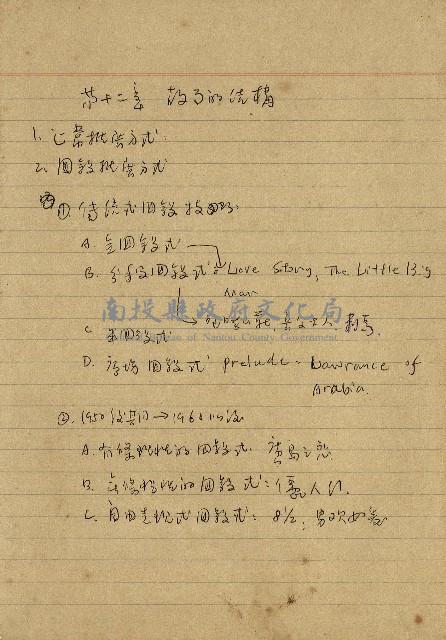 第十二章 故事的結構
1. 正常推展方式:
2. 回敘推展方式
① 傳統式回敘技巧:
A. 全回敘式
B. 分段回敘式: Love Story, The Little Big
Man
C. 回敘式
D. 序場回敘式: prelude - Lawrance of
Arabia.
② 1950 → 1960
A. 有條件性的回敘式: 廣島之戀
B. 無條件性的回敘式: 人
C. 自由表現式回敘式: 8½,
南投縣政府文化局
Cultural Affairs Bureau of Nantou County Government